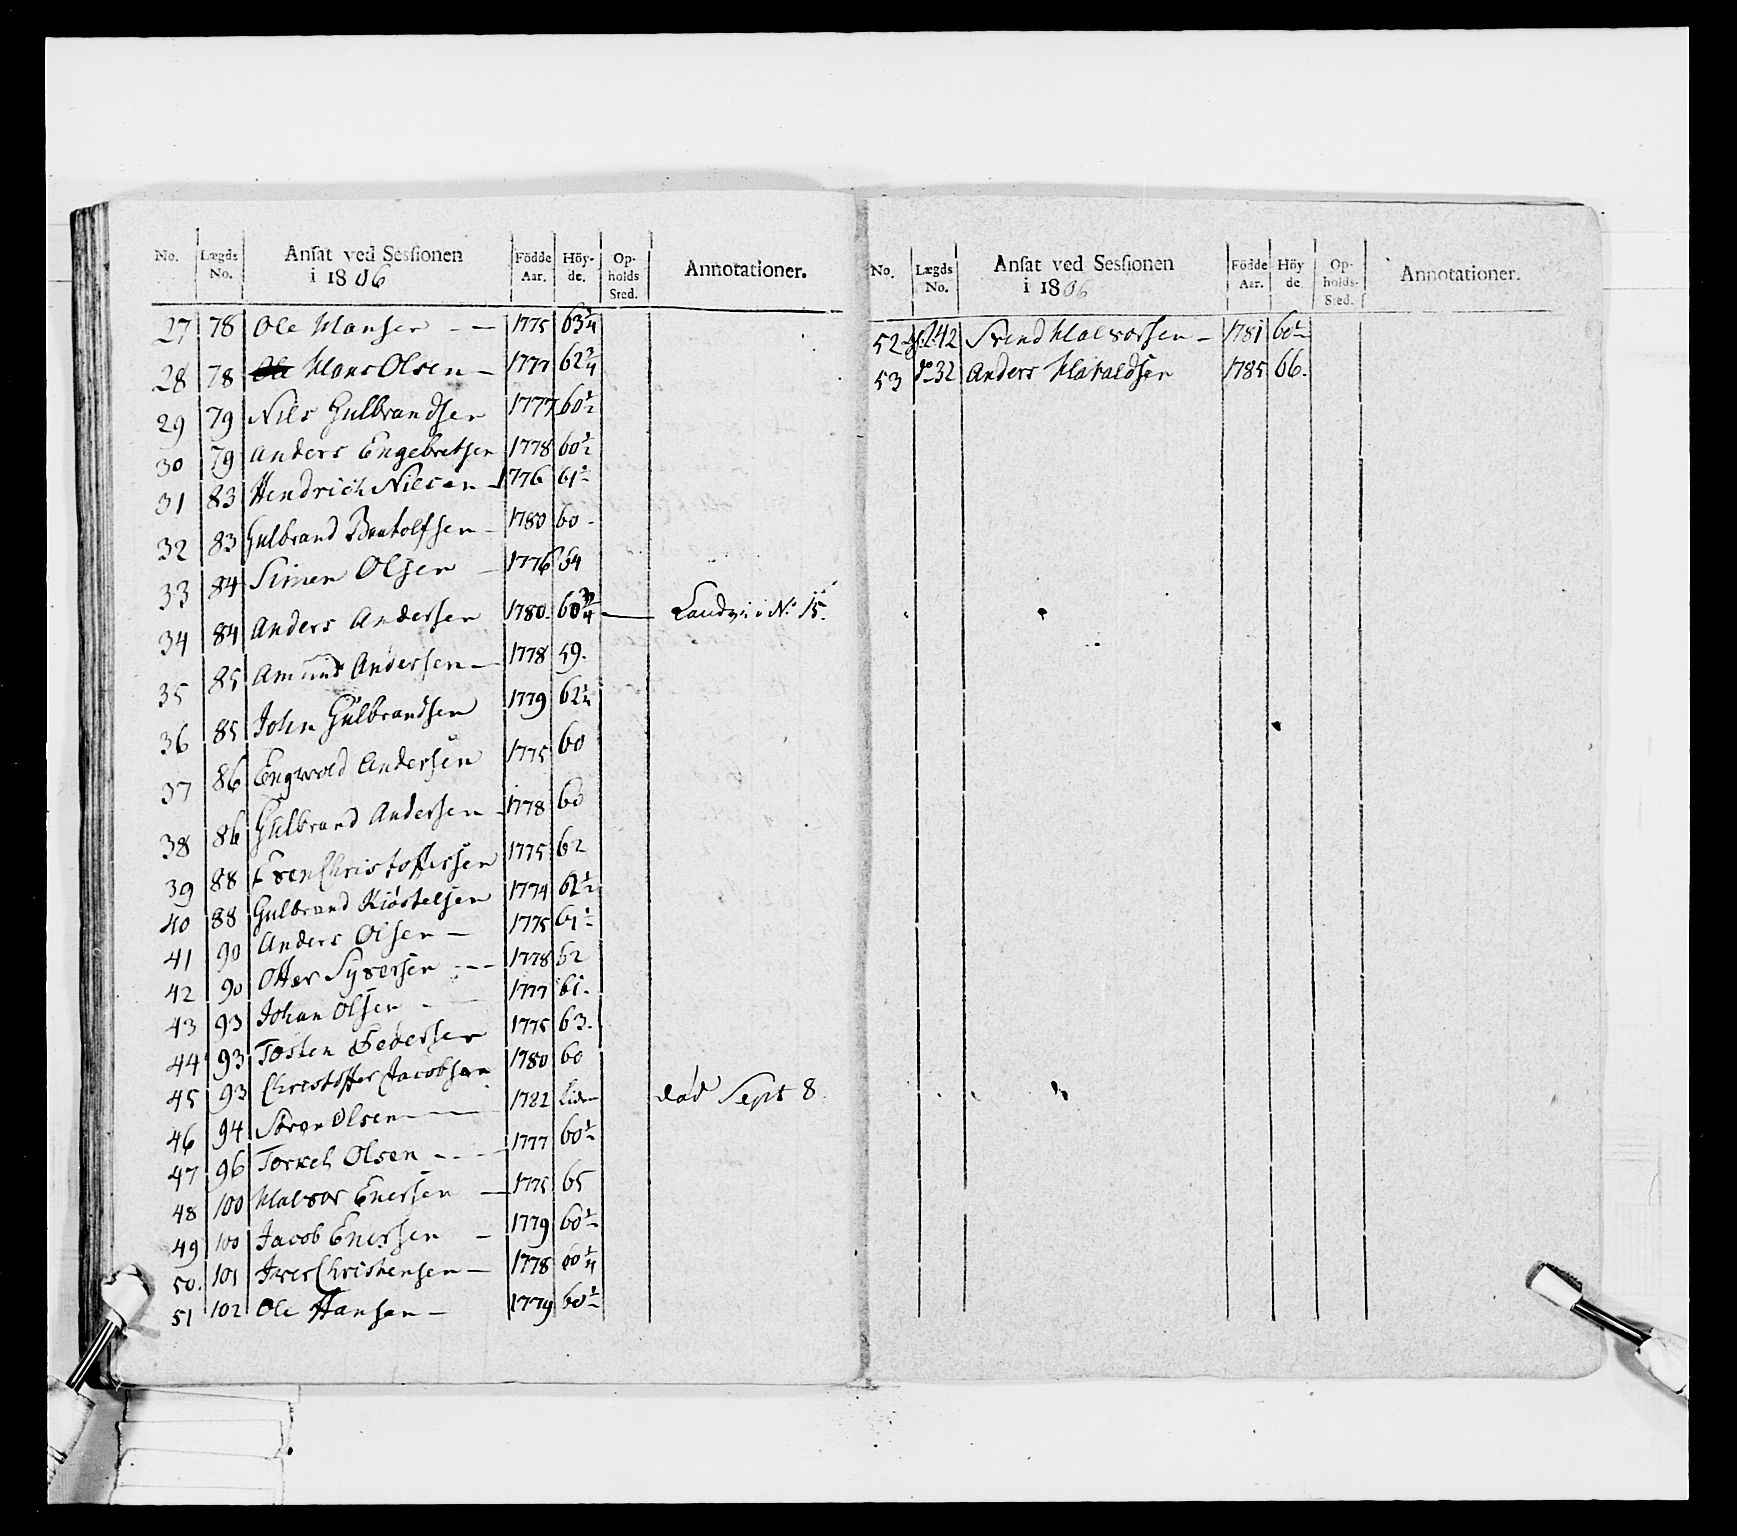 No. Lægds No. Ansat ved Sessionen i 1806 Födde Aar. Höyde. Opholds Sted. Annotationer.
27 78 Ole Hansen - — 1775 63 1/4
28 78 Hans Olsen — 1777 62 3/4
29 79 Nils Gulbrandsen 1777 60 1/2
30 79 Anders Engebretsen 1778 60 1/2
31 83 Hendrich Nilsen — 1776 61 1/2
32 83 Gulbrand Bentolfsen — 1780 60 -
33 84 Simen Olsen — 1776 64
34 84 Anders Andersen 1780. 60 3/4 — No 15.
35 85 Amund Andersen — 1778 59.
36 85 John Gulbrandsen 1779 62 1/4
37 86 Engwold Andersen 1775 60
38 86 Gulbrand Andersen - 1778 60
39 88 Even Christoffersen 1775 62
40 88 Gulbrand Kiöstelsen 1774 62 1/2
41 90 Anders Olsen — 1775 61 1/2
42 90 Otter Syversen - - - 1778 62
43 93 Johan Olsen - — 1777 61.
44 93 Tosten Pedersen 1775 63.
45 93 Christoffer Jacobsen 1780 60
46 94 Sören Olsen — — 1782 liden död Sept 8
47 96 Torkel Olsen - - - - 1777 60 1/2
48 100 Halvor Enersen — 1775 65
49 100 Jacob Enersen - 1779 60 1/2
50. 101 Iver Christensen — 1778 60 1/4
51 102 Ole Hansen — 1779 60 1/2
No. Lægds No. Ansat ved Sessionen i 1806 Födde Aar. Höyde Opholds-Sted. Annotationer.
52 42 Svend Halvorsen — 1781 60 1/2
53 do 32 Anders Haraldsen 1785 66.